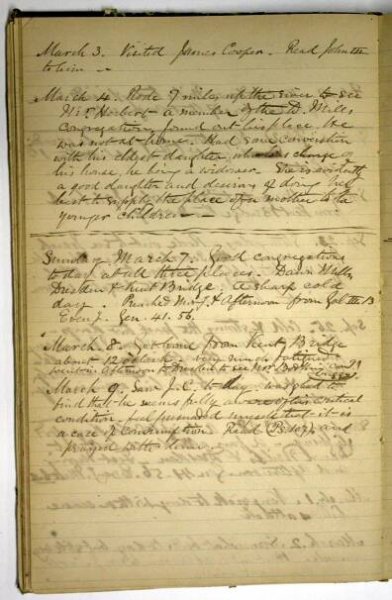 March 3. Visited James Cooper. Read John
to him.
March 4. Rode 9 miles up the river to see
Mr Herbert a member of the D. Mills
Congregation, found out his place. He
was not at home. Had some conversation
with his eldest daughter, who has charge of
his house, he being a widower. She is evidently
a good daughter and desirous of doing her
best to supply the place of a mother to the
younger children.
Sunday March 7. Good congregations
to day at all three places. Dawn Mills,
Dresden & Kent Bridge. A sharp cold
day. Preached Mor. & Afternoon from Gal
Even. Gen. 41. 56.
March 8. Got home from Kent Bridge
about 12 o'clock. very much fatigued
went in Afternoon to Dresden to see
March 9. Saw J.C. to day
find that he seems fully in critical
condition. feel persuaded myself that it is
a case of Consumption. Read (Ps. 107) and
prayed with him.